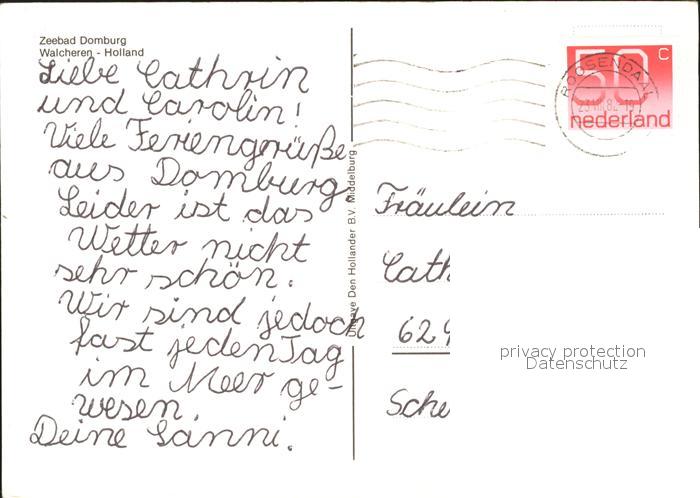 Zeebad Domburg
Walcheren - Holland
Liebe Cathrin
und Carolin!
Viele Feriengrüße
aus Domburg.
Leider ist das
Wetter nicht
sehr schön.
Wir sind jedoch
fast jeden Tag
im Meer ge-
wesen.
Deine Sanni.
Uitgave Den Hollander B.V. Middelburg
50 c
nederland
ROOSENDAAL
Fräulein
Cath
629
Sche
privacy protection
Datenschutz